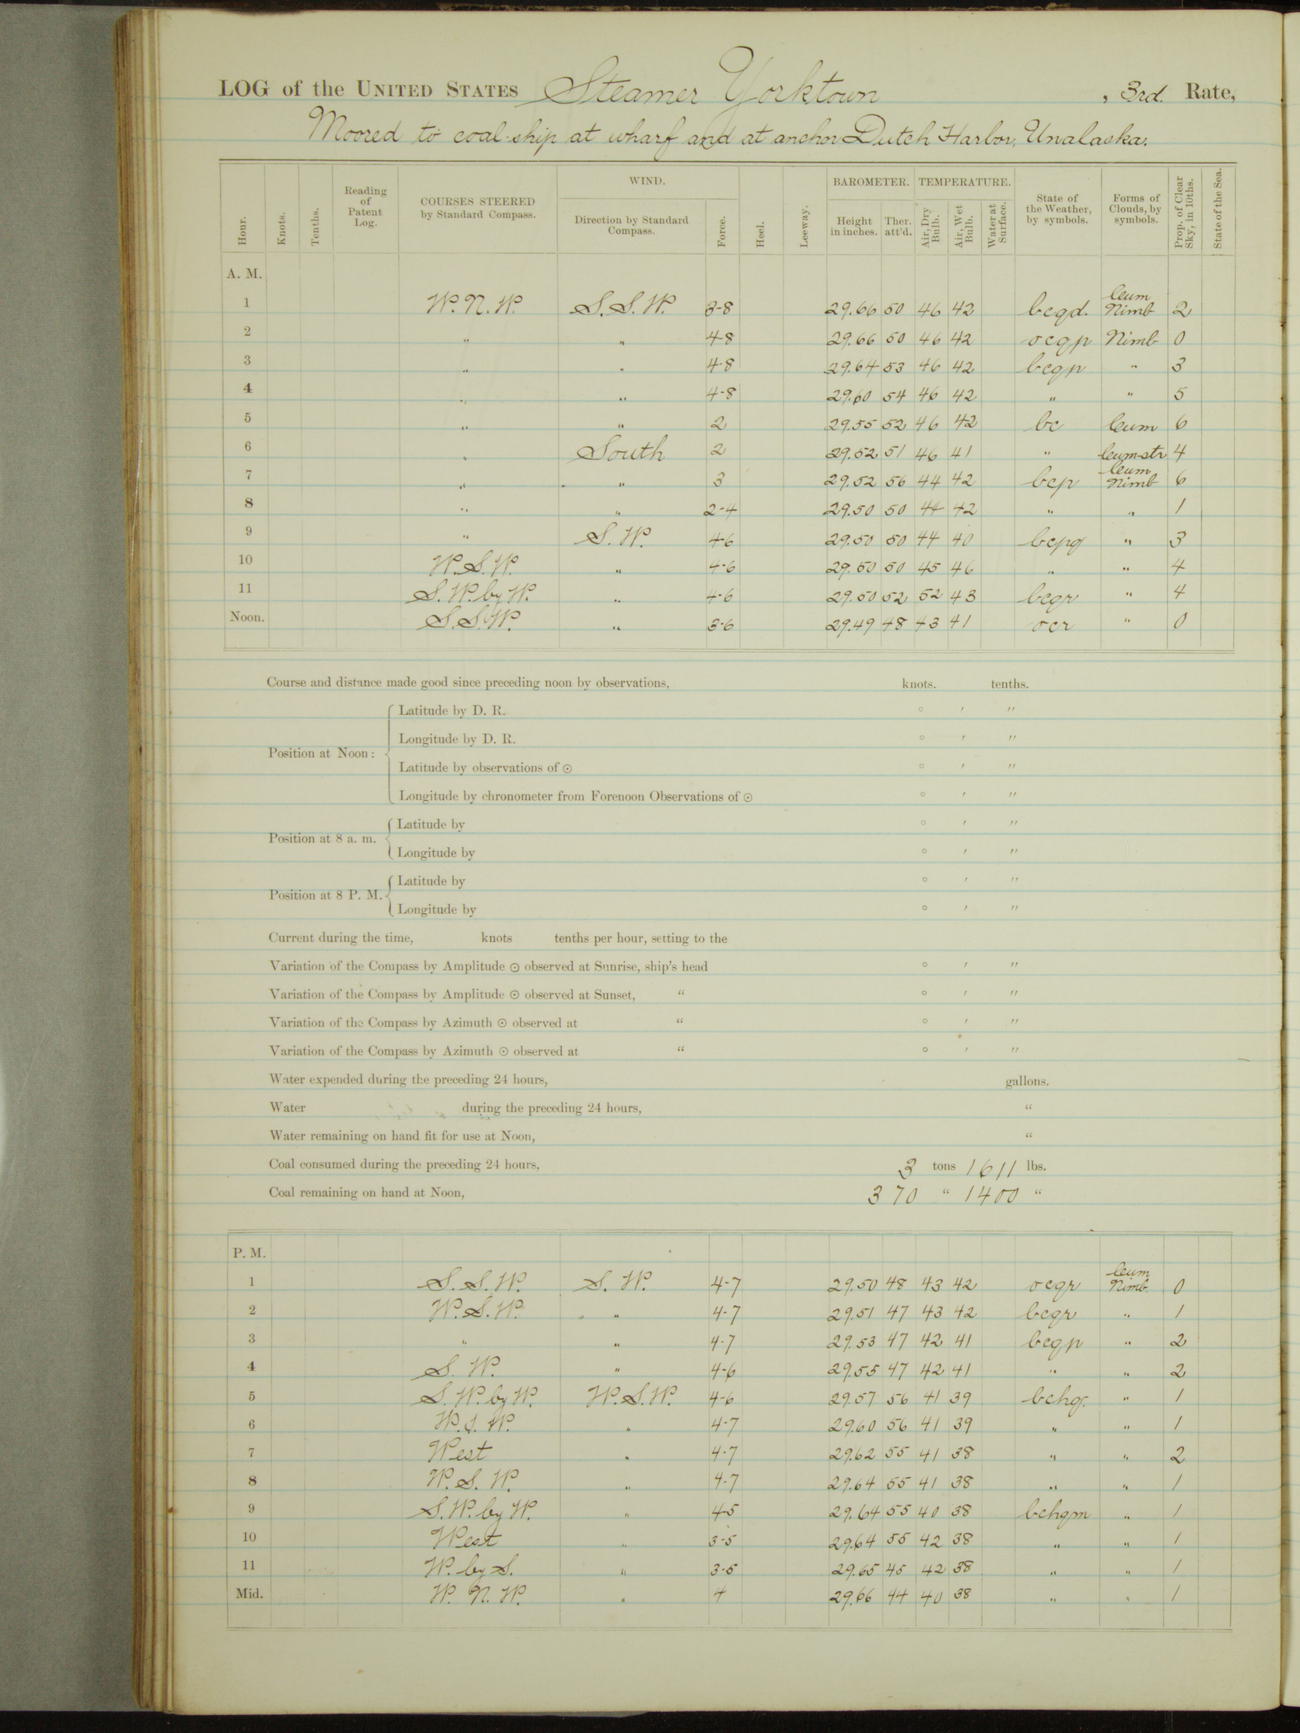 LOG of the UNITED STATES Steamer Yorktown, 3rd. Rate,
Moored to coal-ship at wharf and at anchor Dutch Harbor, Unalaska.
Hour. Knots. Tenths. Reading of Patent Log. COURSES STEERED by Standard Compass. WIND. Direction by Standard Compass. Force. Heel. Leeway. BAROMETER. Height in inches. Ther. att'd. TEMPERATURE. Air, Dry Bulb. Air, Wet Bulb. Water at Surface. State of the Weather, by symbols. Forms of Clouds, by symbols. Prop. of Clear Sky, in 10ths. State of the Sea.
A. M.
1 W.N.W. S.S.W. 3-8 29.66 50 46 42 bcqd. Cum Nimb 2
2 " " 4-8 29.66 50 46 42 ocqp Nimb 0
3 " " 4-8 29.64 53 46 42 bcqp " 3
4 " " 4-8 29.60 54 46 42 " " 5
5 " " 2 29.55 52 46 42 bc Cum 6
6 " South 2 29.52 51 46 41 " Cum-str 4
7 " " 3 29.52 56 44 42 bcp Cum Nimb 6
8 " " 2-4 29.50 50 44 42 " " 1
9 " S.W. 4-6 29.50 50 44 40 bcpq " 3
10 W.S.W. " 4-6 29.50 50 45 46 " " 4
11 S.W. by W. " 4-6 29.50 52 52 43 bcqr " 4
Noon. S.S.W. " 3-6 29.49 48 43 41 ocr " 0
Course and distance made good since preceding noon by observations, knots. tenths.
Position at Noon: Latitude by D. R. ° ′ ″
Longitude by D. R. ° ′ ″
Latitude by observations of ☉ ° ′ ″
Longitude by chronometer from Forenoon Observations of ☉ ° ′ ″
Position at 8 a. m. Latitude by ° ′ ″
Longitude by ° ′ ″
Position at 8 P. M. Latitude by ° ′ ″
Longitude by ° ′ ″
Current during the time, knots tenths per hour, setting to the
Variation of the Compass by Amplitude ☉ observed at Sunrise, ship's head ° ′ ″
Variation of the Compass by Amplitude ☉ observed at Sunset, " ° ′ ″
Variation of the Compass by Azimuth ☉ observed at " ° ′ ″
Variation of the Compass by Azimuth ☉ observed at " ° ′ ″
Water expended during the preceding 24 hours, gallons.
Water during the preceding 24 hours, "
Water remaining on hand fit for use at Noon, "
Coal consumed during the preceding 24 hours, 3 tons 1611 lbs.
Coal remaining on hand at Noon, 370 " 1400 "
P. M.
1 S.S.W. S.W. 4-7 29.50 48 43 42 ocqr Cum Nimb. 0
2 W.S.W. " 4-7 29.51 47 43 42 bcqr " 1
3 " " 4-7 29.53 47 42 41 bcqp " 2
4 S.W. " 4-6 29.55 47 42 41 " " 2
5 S.W. by W. W.S.W. 4-6 29.57 56 41 39 bchq. " 1
6 W.S.W. " 4-7 29.60 56 41 39 " " 1
7 West " 4-7 29.62 55 41 38 " " 2
8 W.S.W. " 4-7 29.64 55 41 38 " " 1
9 S.W. by W. " 4-5 29.64 55 40 38 bchqm " 1
10 West " 3-5 29.64 55 42 38 " " 1
11 W. by S. " 3-5 29.65 45 42 38 " " 1
Mid. W.N.W. " 4 29.66 44 40 38 " " 1